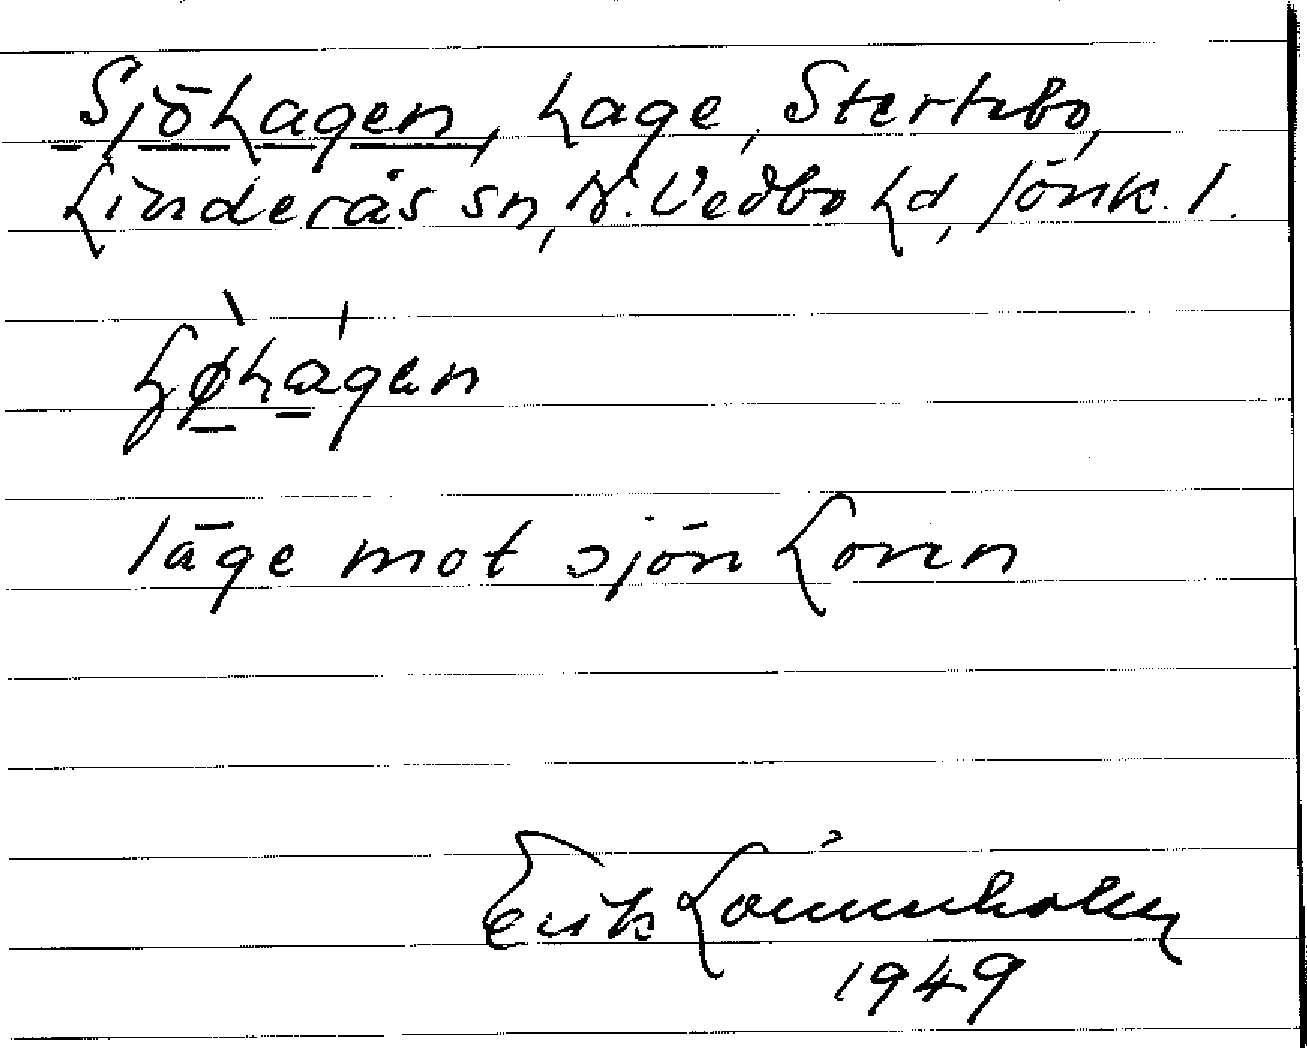 Sjöhagen, hage, Stertebo,
Linderås sn, N. Vedbo hd, Jönk. l.
läge mot sjön Loren
Erik
1949